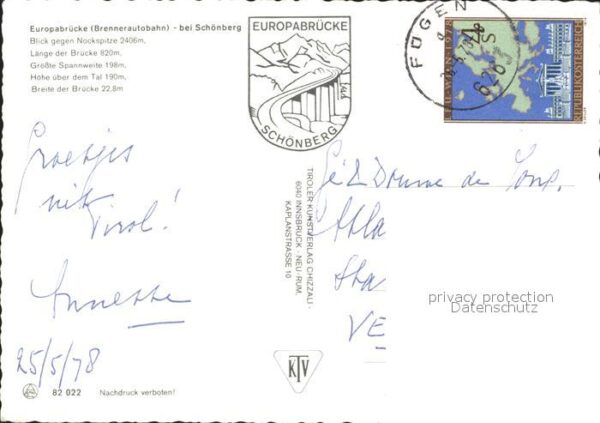 Europabrücke (Brennerautobahn) - bei Schönberg
Blick gegen Nockspitze 2406m,
Länge der Brücke 820m,
Größte Spannweite 198m,
Höhe über dem Tal 190m,
Breite der Brücke 22,8m
EUROPABRÜCKE
SCHÖNBERG
FÜGEN
6263
REPUBLIK ÖSTERREICH
Groetjes
uit
Tirol!
Annette
25/5/78
TIROLER KUNSTVERLAG CHIZZALI ·
6040 INNSBRUCK - NEU-RUM,
KAPLANSTRASSE 10
de
VE
privacy protection
Datenschutz
KTV
82 022 Nachdruck verboten!